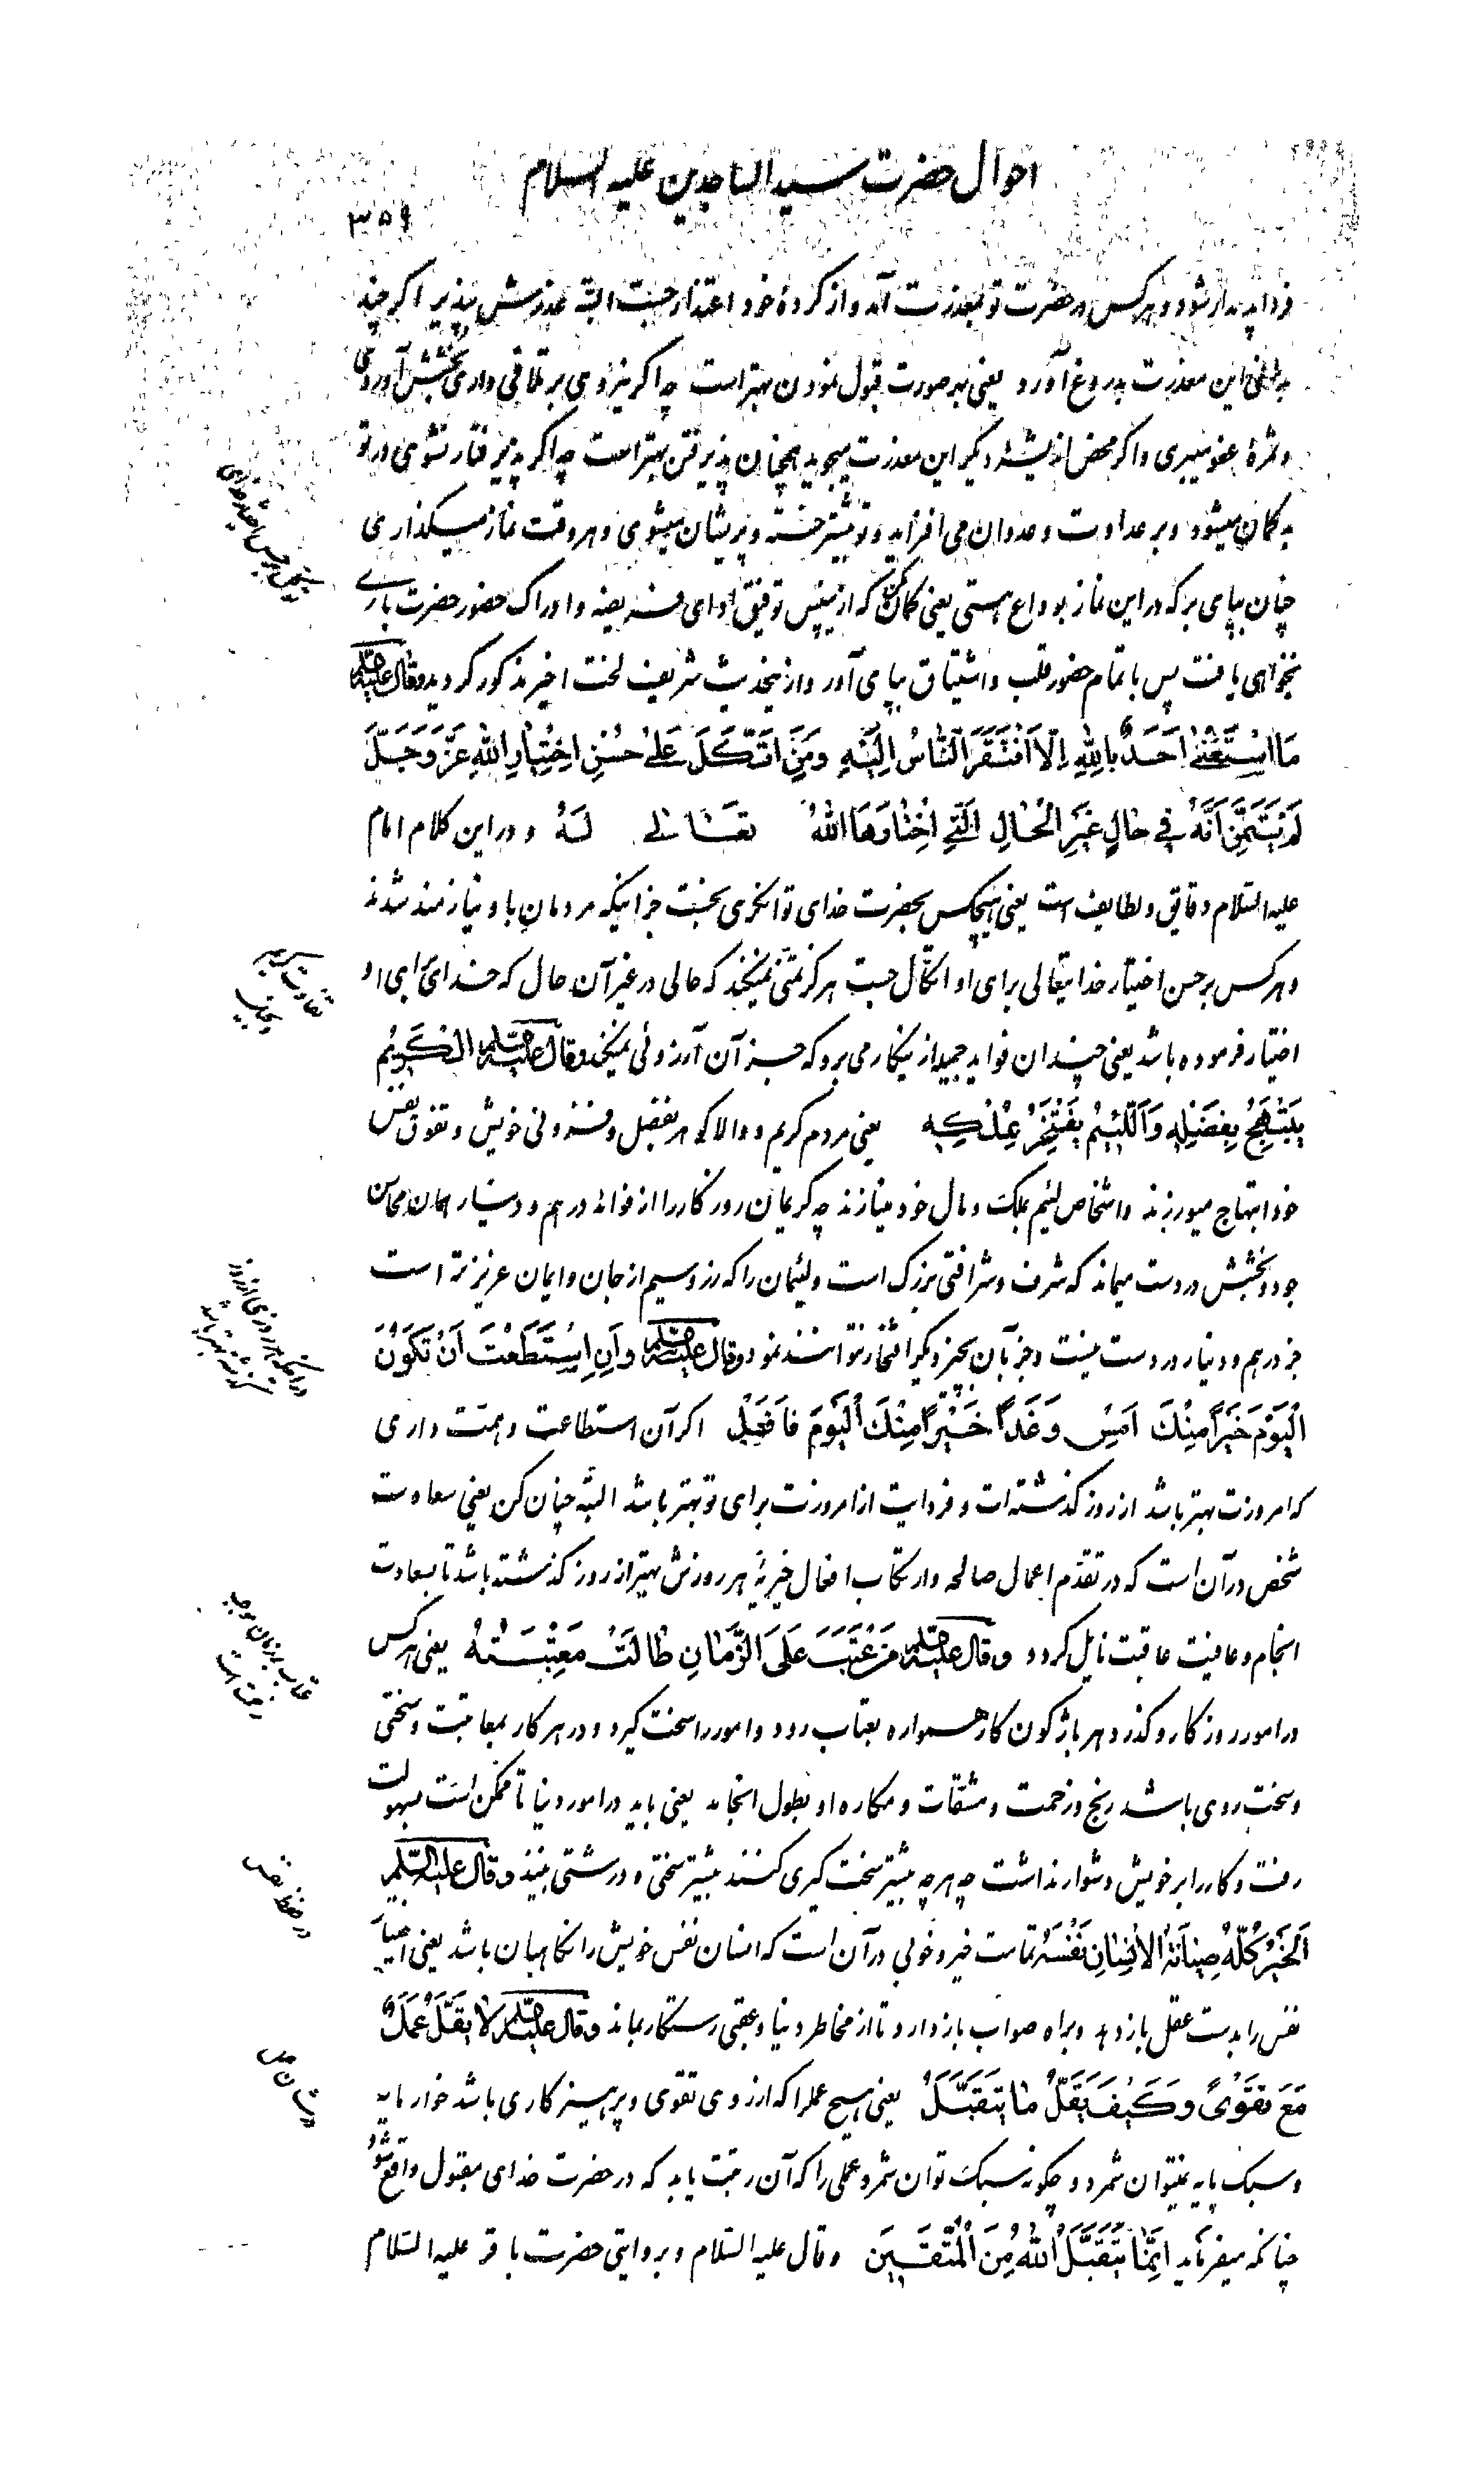 احوال حضرت سید الساجدین علیه السلام
۳۵۹
فردا پدیدار شود و هر کس در حضرت تو بمعذرت آمد و از کردهٔ خود اعتذار جست البته عذرش بپذیر اگر چند
این معذرت بدروغ آورد یعنی بهر صورت قبول نمودن بهتر است چه اگر نیروی بر تلافی داری بخشش آوردی
و ثمرهٔ عفو میبری و اگر محض اندیشهٔ دیگر این معذرت میجوید همچنان پذیرفتن بهتر است چه اگر پذیرفتار نشوی در تو
بدگمان میشود و بر عداوت و عدوان می افزاید و تو بیشتر خسته و پریشان میشوی و هر وقت نماز میگذاری
چنان بپای بر که در این نماز بوداع هستی یعنی گمان کن که از سپس توفیق ادای فریضه و ادراک حضور حضرت باری
نخواهی یافت پس با تمام حضور قلب و اشتیاق بپای آور و از اینحدیث شریف لخت اخیر مذکور گردید وقال علیه السلام
مَا اسْتَغْنیٰ اَحَدٌ بِاللهِ اِلَّا افْتَقَرَ النَّاسُ اِلَیْهِ وَمَنِ اتَّکَلَ عَلیٰ حُسْنِ اخْتِیارِ اللهِ عَزَّ وَجَلَّ
لَمْ یَتَمَنَّ اَنَّهُ فی حالٍ غَیْرِ الْحالِ الَّتِی اخْتارَهَا اللهُ تَعَالیٰ لَهُ و در این کلام امام
علیه السلام دقایق و لطایف است یعنی هیچکس بحضرت خدای توانگری نجست جز اینکه مردمان باو نیازمند شدند
و هر کس بر حسن اختیار خدایتعالی برای او اتکال جست هرگز تمنی نمیکند که حالی در غیر آن حال که خدای برای او
اختیار فرموده باشد یعنی چندان فواید جمیله از نیکار می برد که جز آن آرزوئی نمیکند وقال علیه السلام الْکَرِیمُ
یَبْتَهِجُ بِفَضْلِهِ وَاللَّئِیمُ یَفْتَخِرُ بِمُلْکِهِ یعنی مردم کریم و والاگوهر بفضل و فزونی خویش و تفوق نفس
خود ابتهاج میورزند و اشخاص لئیم بملک و مال خود مینازند چه کریمان روزگار را از فوائد درهم و دینار همان محاسن
جود و بخشش در دست میماند که شرف و شرافتی بزرگ است و لئیمان را که زر و سیم از جان و ایمان عزیزتر است
جز درهم و دینار در دست نیست و جز بآن بچیز دیگر افتخار نتوانند نمود وقال علیه السلام وَ اِنِ اسْتَطَعْتَ اَنْ تَکُونَ
الْیَوْمَ خَیْرًا مِنْكَ اَمْسِ وَ غَدًا خَیْرًا مِنْكَ الْیَوْمَ فَافْعَلْ اگر آن استطاعت و همت داری
که امروزت بهتر باشد از روز گذشته ات و فردایت از امروزت برای تو بهتر باشد البته چنان کن یعنی سعادت
شخص در آن است که در تقدم اعمال صالحه و ارتکاب افعال خیریّه هر روزش بهتر از روز گذشته باشد تا بسعادت
انجام و عافیت عاقبت نایل گردد وقال علیه السلام مَنْ عَتَبَ عَلَی الزَّمانِ طالَتْ مَعْتِبَتُهُ یعنی هر کس
در امور روزگار و گذر دهر باژگون کار همواره بعتاب رود و امور را سخت گیرد و در هر کار بمعاتبت و سختی
و سخت روی باشد رنج و زحمت و مشقات و مکاره او بطول انجامد یعنی باید در امور دنیا تا ممکن است بسهولت
رفت و کار را بر خویش دشوار نداشت چه هر چه بیشتر سخت گیری کنند بیشتر سختی و درشتی بینند و قال علیه السلام
اَلْخَیْرُ کُلُّهُ صِیانَةُ الْاِنْسانِ نَفْسَهُ تمامت خیر و خوبی در آن است که انسان نفس خویش را نگاهبان باشد یعنی
نفس را بدست عقل باز دهد و براه صواب باز دارد تا از مخاطر دنیا و عقبی رستگار بماند وقال علیه السلام لا یَقِلُّ عَمَلٌ
مَعَ تَقْوًی وَ کَیْفَ یَقِلُّ مَا یُتَقَبَّلُ یعنی هیچ عمل را که از روی تقوی و پرهیزکاری باشد خوار مایه
و سبک پایه نمیتوان شمرد و چگونه سبک توان شمرد عملی را که آن رتبت یابد که در حضرت خدای مقبول واقع شود
چنانکه میفرماید اِنَّمَا یَتَقَبَّلُ اللهُ مِنَ الْمُتَّقِینَ وقال علیه السلام و بروایتی حضرت باقر علیه السلام
در حفظ نفس